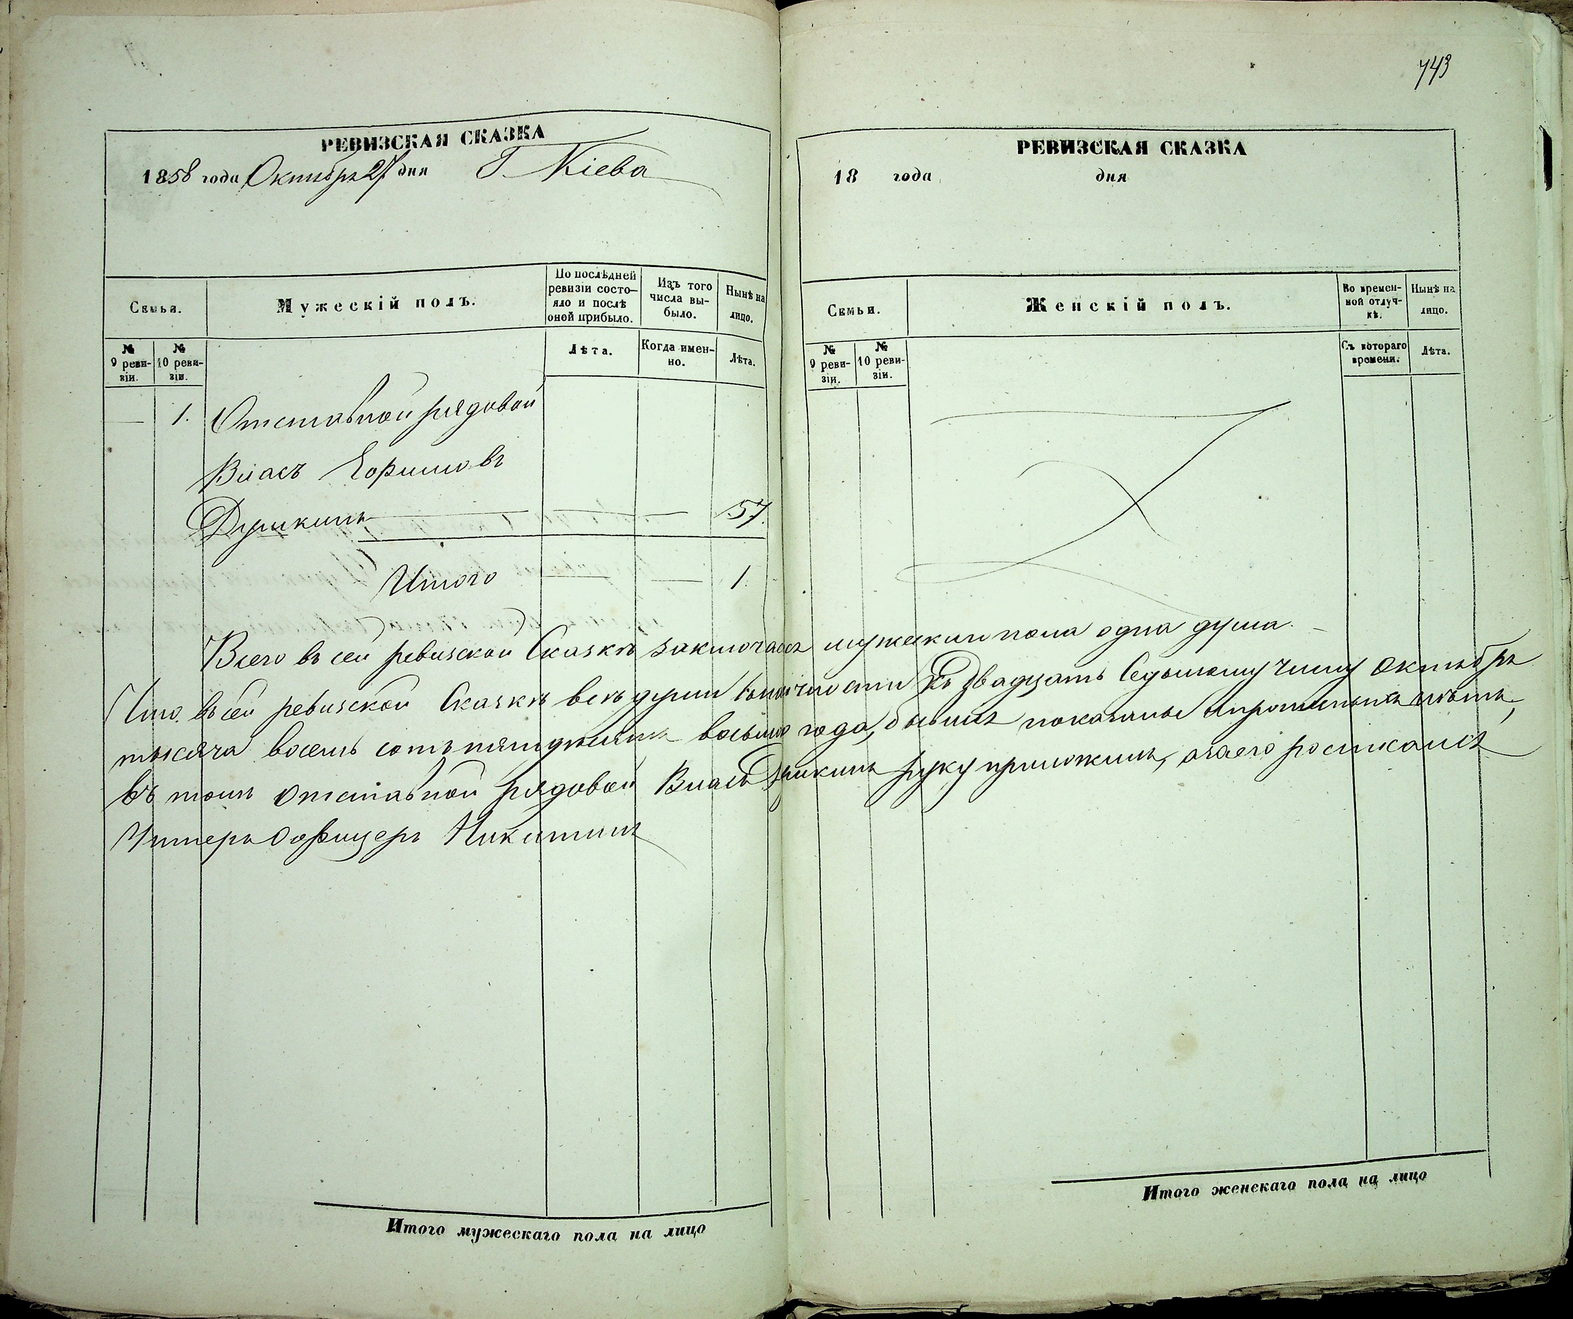 743
РЕВИЗСКАЯ СКАЗКА
1858 года Октября 27 дня Г. Кіева
Семьи.
Мужескій полъ.
По послѣдней ревизіи состояло и послѣ оной прибыло.
Изъ того числа выбыло.
Нынѣ на лицо.
№ 9 ревизіи.
№ 10 ревизіи.
Лѣта.
Когда именно.
Лѣта.
— 1. Отставной рядовой
Власъ
Душкинъ — — — 57.
Итого — — 1.
РЕВИЗСКАЯ СКАЗКА
18 года дня
Семьи.
Женскій полъ.
Во временной отлучкѣ.
Нынѣ на лицо.
№ 9 ревизіи.
№ 10 ревизіи.
Съ котораго времени.
Лѣта.
Всего въ сей ревизской Сказкѣ заключается мужеска пола одна душа.
Что въ сей ревизской Сказкѣ всѣ души къ Двадцать Седьмому числу Октября
тысяча восемь сотъ пятьдесятъ восьмого года, показаны
въ томъ Отставной рядовой Власъ Душкинъ руку приложилъ, а за его росписался
Унтеръ Офицеръ Никитинъ
Итого мужескаго пола на лицо
Итого женскаго пола на лицо